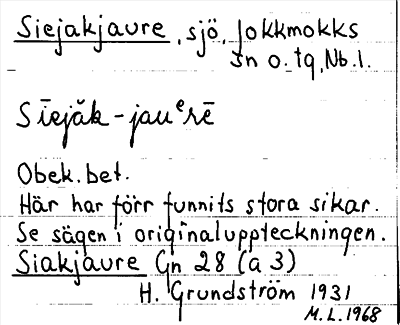 Siejakjaure, sjö, Jokkmokks
sn o. tg, Nb. l.
Sīejăk-jauᵉrē
Obek. bet.
Här har förr funnits stora sikar.
Se sägen i originaluppteckningen.
Siakjaure Gn 28 (a 3)
H. Grundström 1931
M. L. 1968